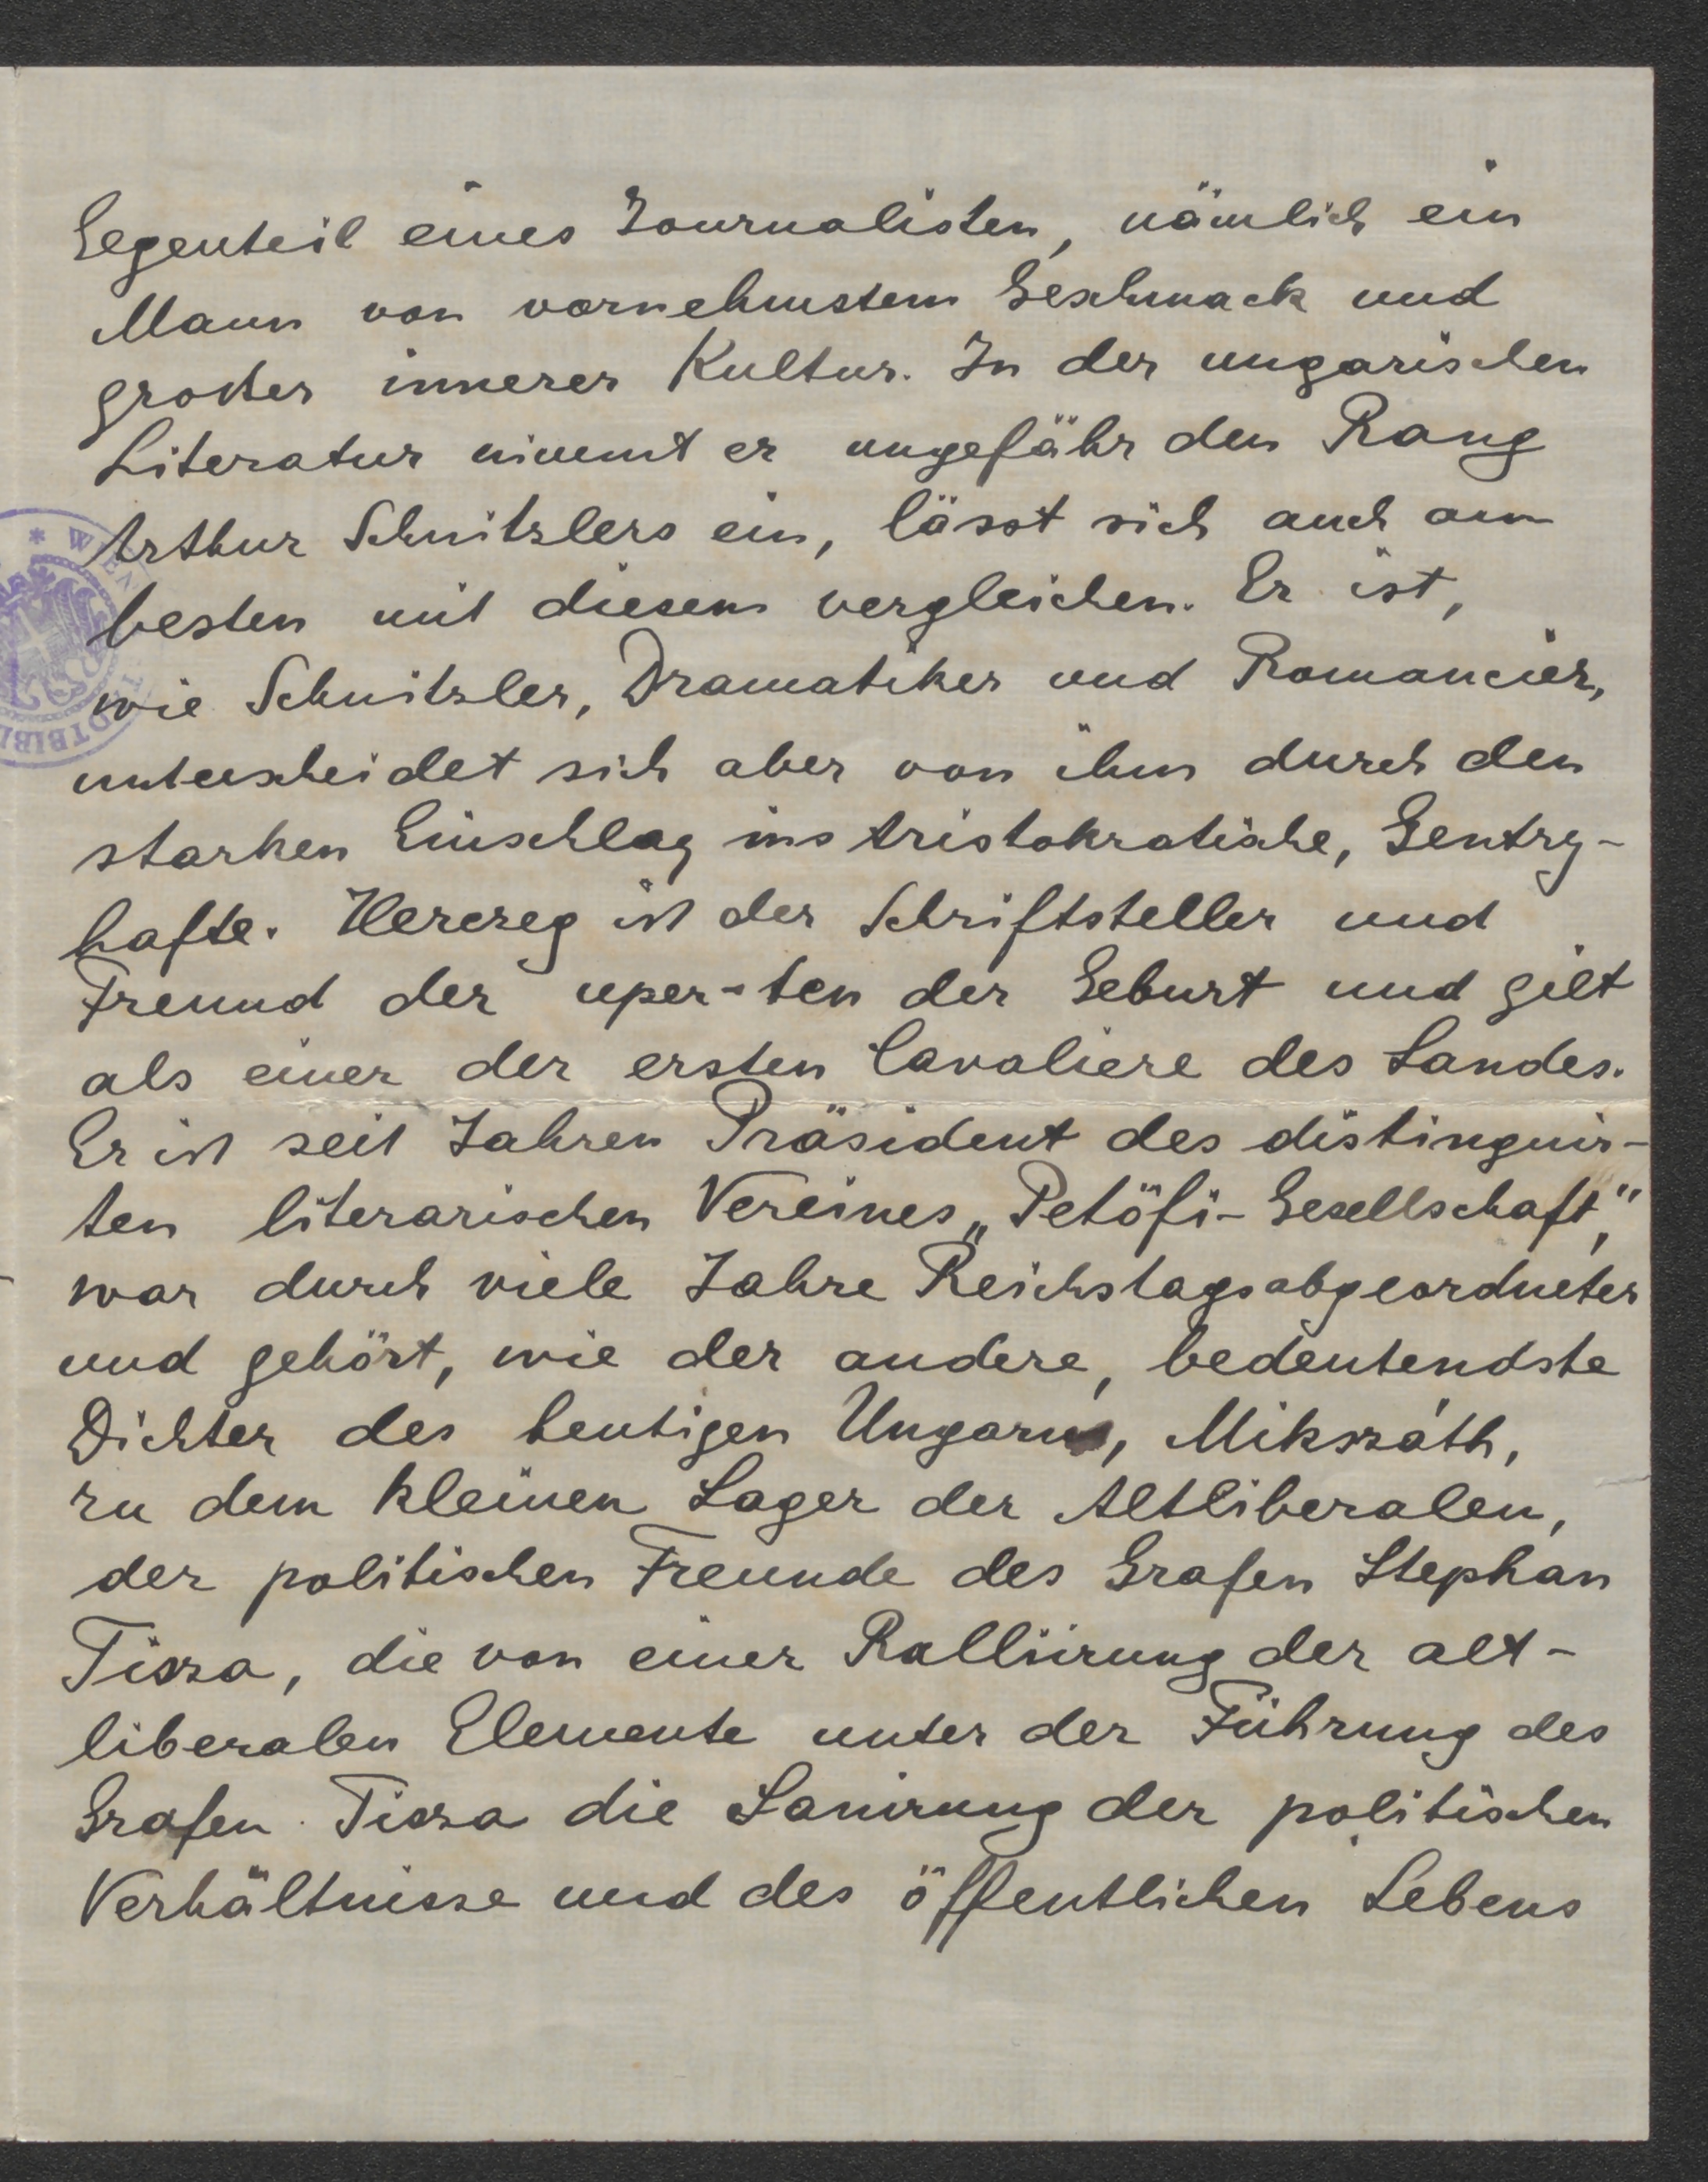 Gegenteil eines Journalisten, nämlich ein
Mann von vornehmstem Geschmack und
großer innerer Kultur. In der ungarischen
Literatur nimmt er ungefähr den Rang
Arthur Schnitzlers ein, lässt sich auch am
besten mit diesem vergleichen. Er ist,
wie Schnitzler, Dramatiker und Romancier,
unterscheidet sich aber von ihm durch den
starken Einschlag ins Aristokratische, Gentry-
hafte. Herczeg ist der Schriftsteller und
Freund der uper-ten der Geburt und gilt
als einer der ersten Cavaliere des Landes.
Er ist seit Jahren Präsident des distinguir-
ten literarischen Vereines „Petöfi-Gesellschaft",
war durch viele Jahre Reichstagsabgeordneter
und gehört, wie der andere, bedeutendste
Dichter des heutigen Ungarn, Mikszáth,
zu dem kleinen Lager der Altliberalen,
der politischen Freunde des Grafen Stephan
Tisza, die von einer Ralliirung der alt-
liberalen Elemente unter der Führung des
Grafen Tisza die Sanirung der politischen
Verhältnisse und des öffentlichen Lebens